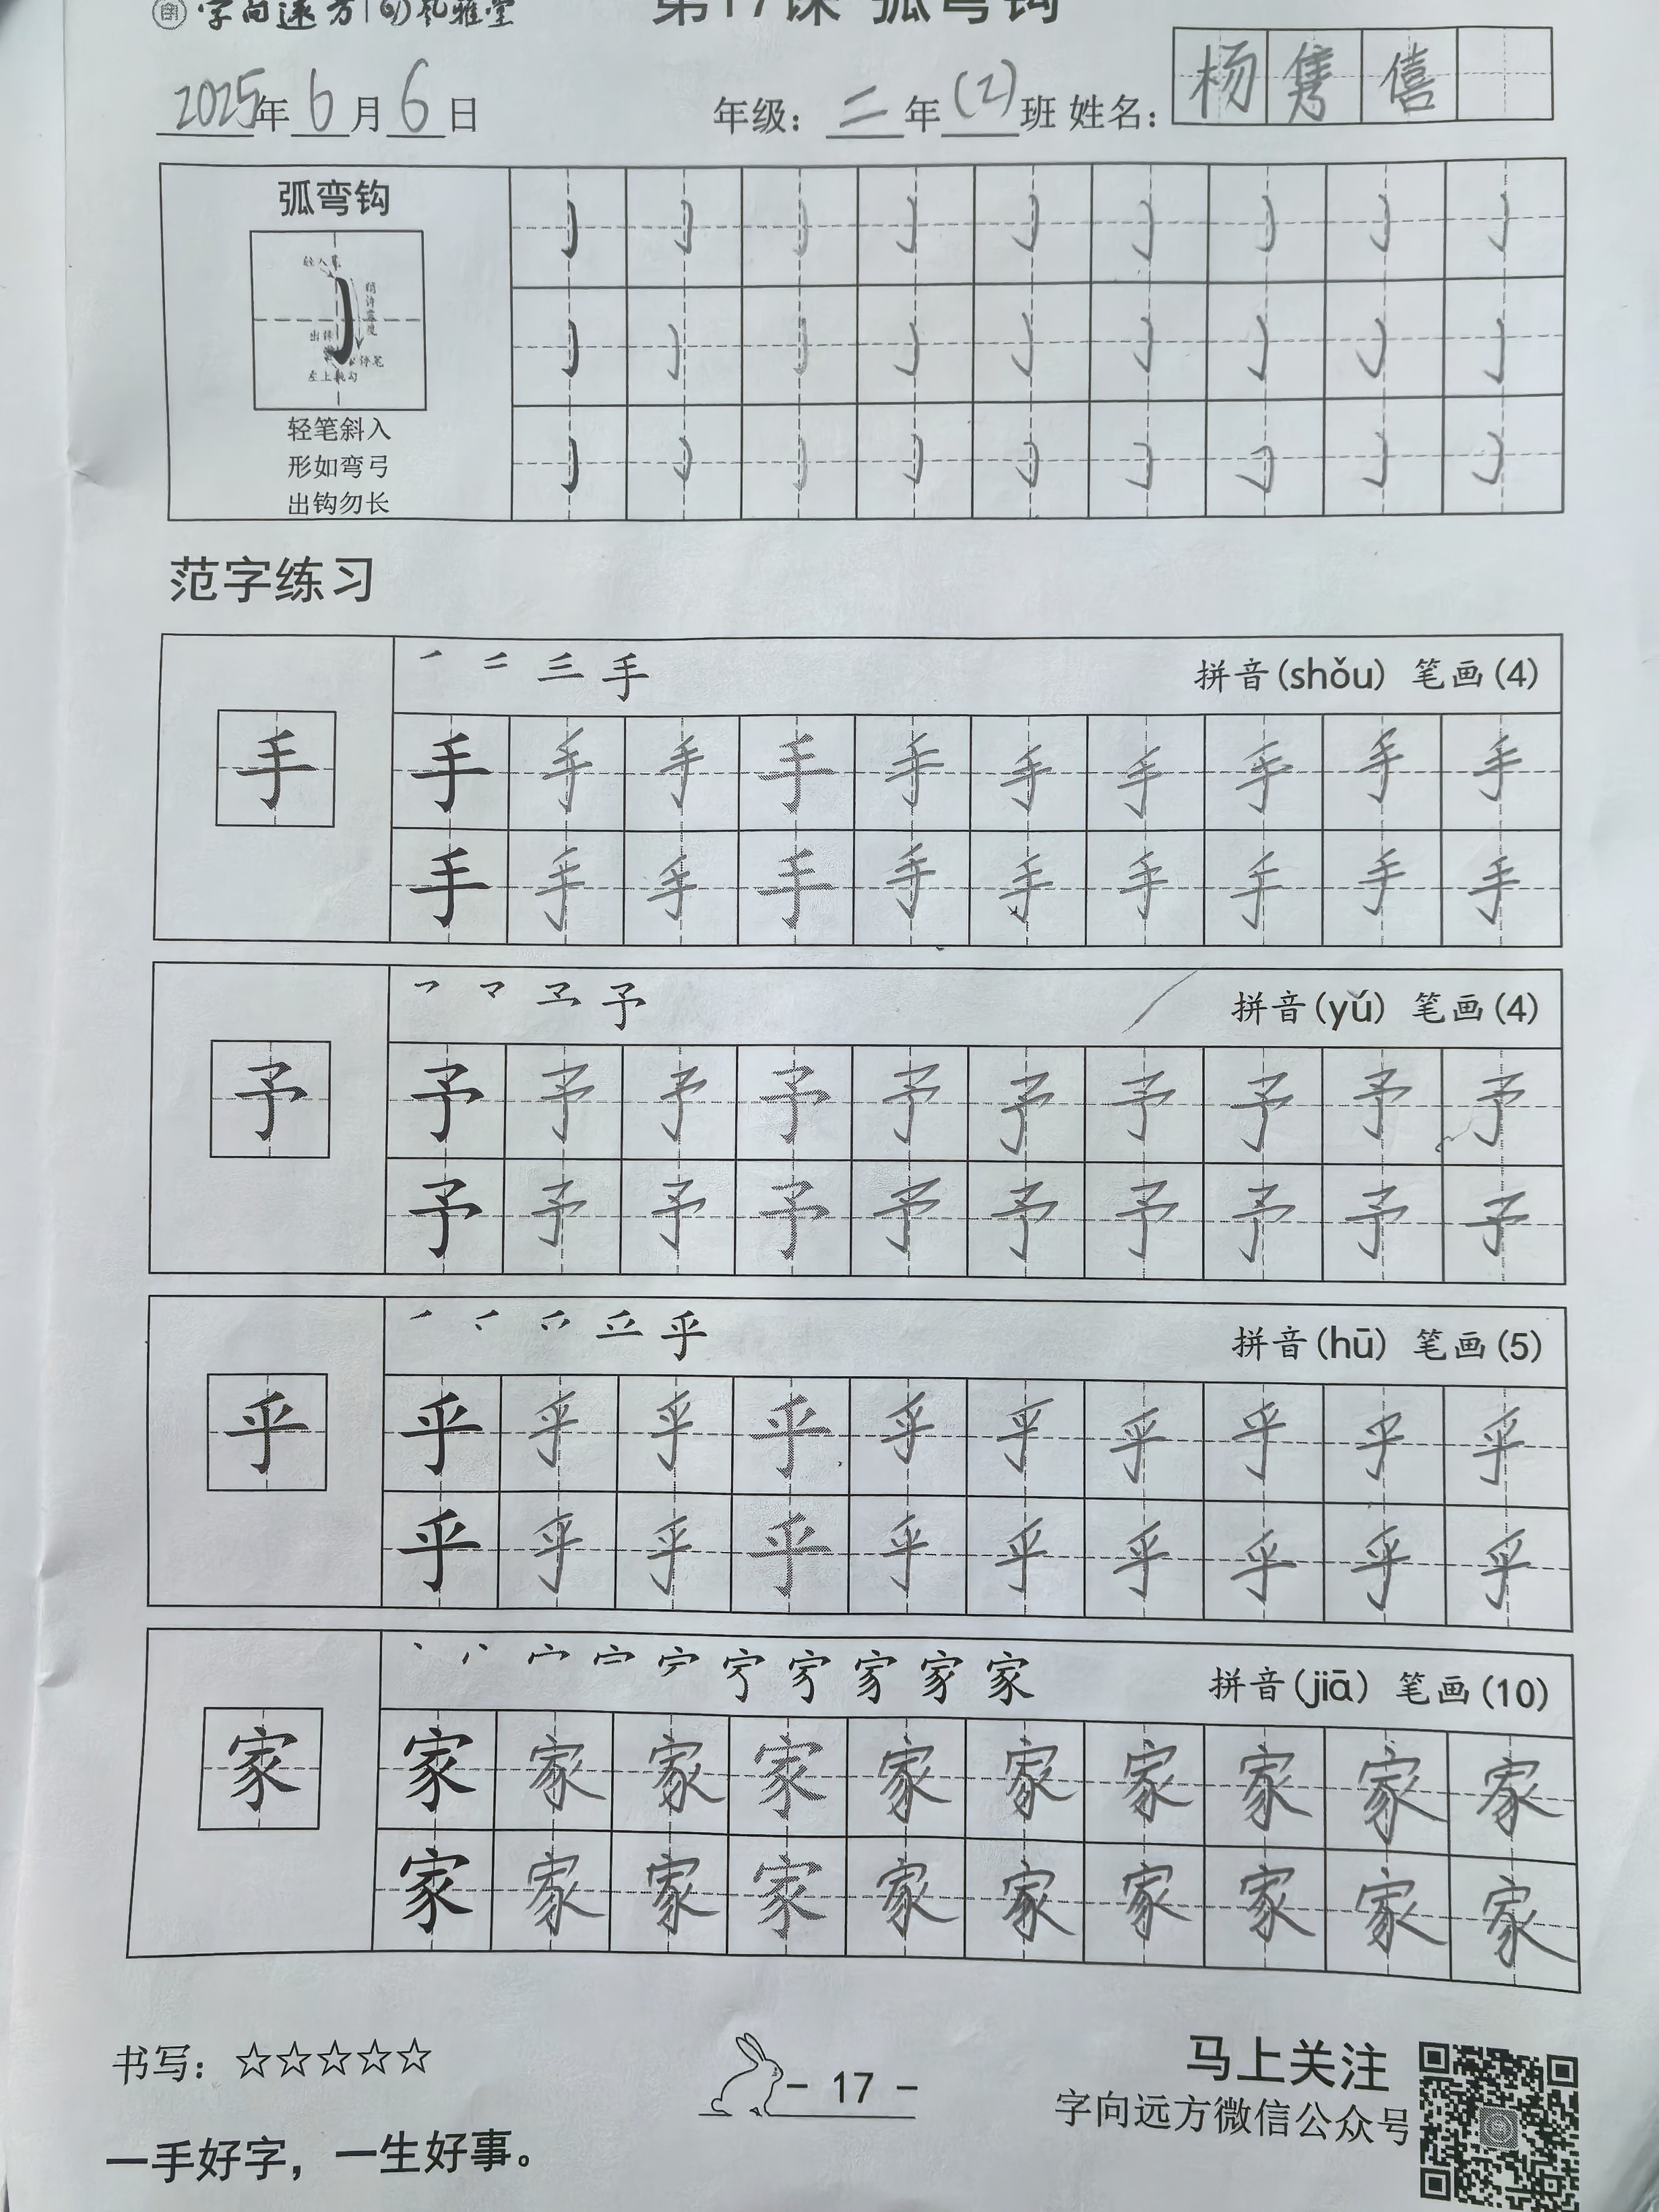 字向远方 风雅堂 第17课 弧弯钩
2025年6月6日 年级：二年(2)班 姓名：杨隽僖
弧弯钩
轻笔斜入
形如弯弓
出钩勿长
范字练习
手 拼音(shǒu) 笔画(4)
手 手 手 手 手 手 手 手 手 手 手
手 手 手 手 手 手 手 手 手 手
予 拼音(yú) 笔画(4)
予 予 予 予 予 予 予 予 予 予 予
予 予 予 予 予 予 予 予 予 予
乎 拼音(hū) 笔画(5)
乎 乎 乎 乎 乎 乎 乎 乎 乎 乎 乎
乎 乎 乎 乎 乎 乎 乎 乎 乎 乎
家 拼音(jiā) 笔画(10)
家 家 家 家 家 家 家 家 家 家 家
家 家 家 家 家 家 家 家 家 家
书写：☆☆☆☆☆
- 17 -
马上关注
字向远方微信公众号
一手好字，一生好事。